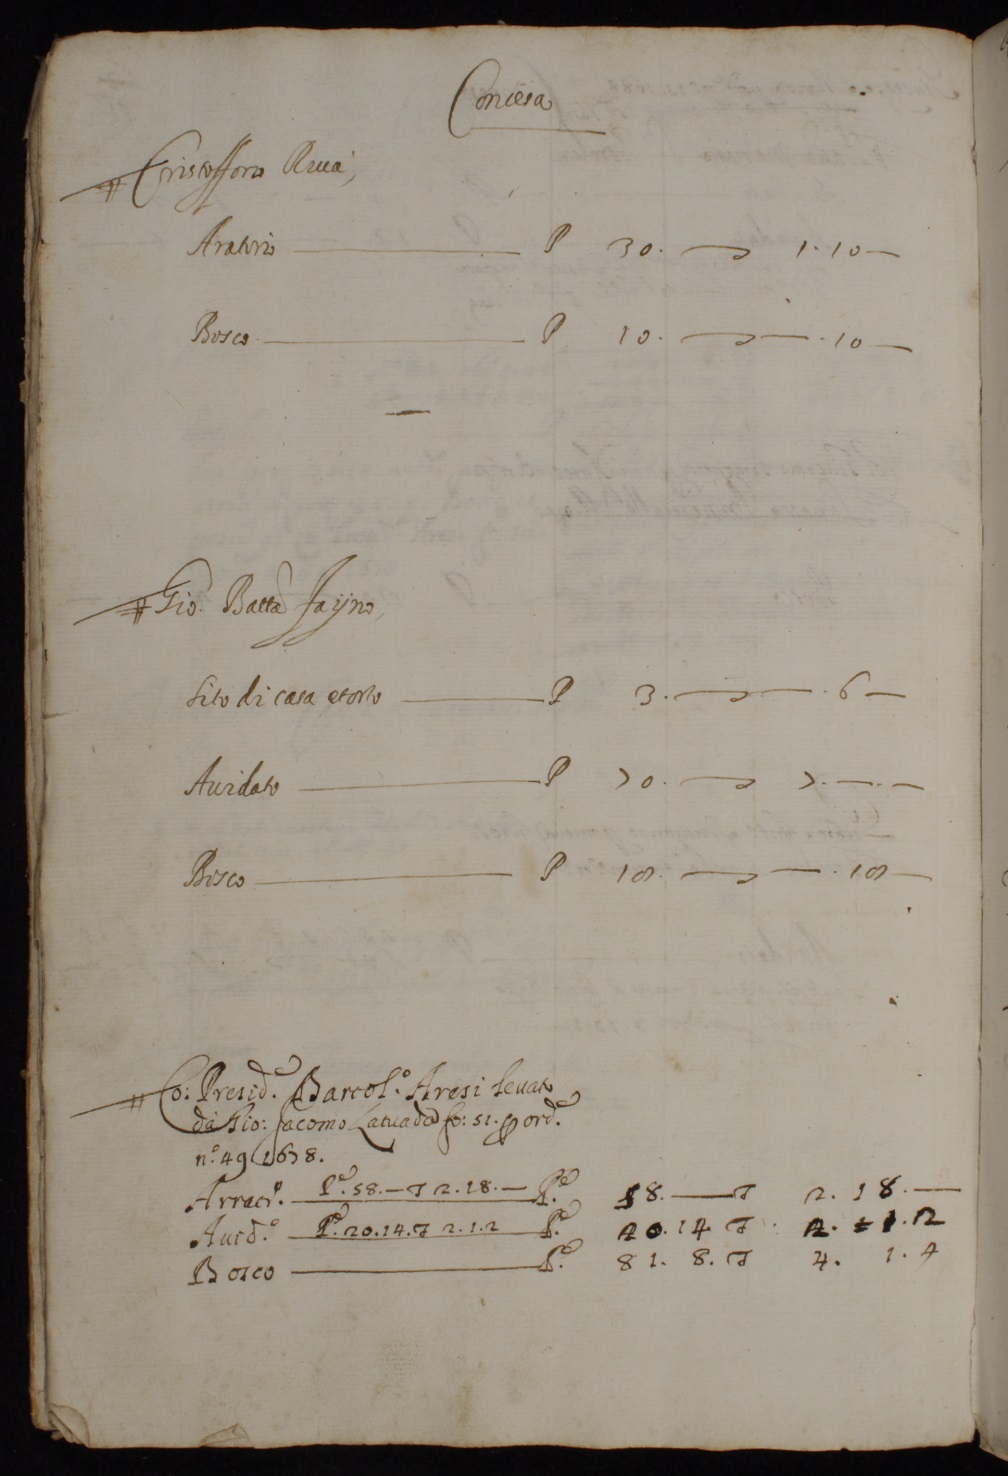 Concesa
# Cristofforo Riua,
Aratorio P 30. — 1. 10 —
Bosco P 10. — — . 10 —
# Gio. Batta Fayno,
Sito di casa et orto P 3. — — . 6 —
Auidato P 70. — 7. — . —
Bosco P 18. — — . 18 —
# Co: Presid.e Barcol.o Aresi leuato
da Gio: Jacomo Latuada fo: 51. p ord.e
n.o 49 1678.
Arraci.o P.e 58. — T 2. 18. — P.e 58. — T 2. 18. —
Auid.o P.e 20. 14. T 2. 1. 2 P.e 20. 14 T 2. 1. 2
Bosco P.e 81. 8. T 4. 1. 4